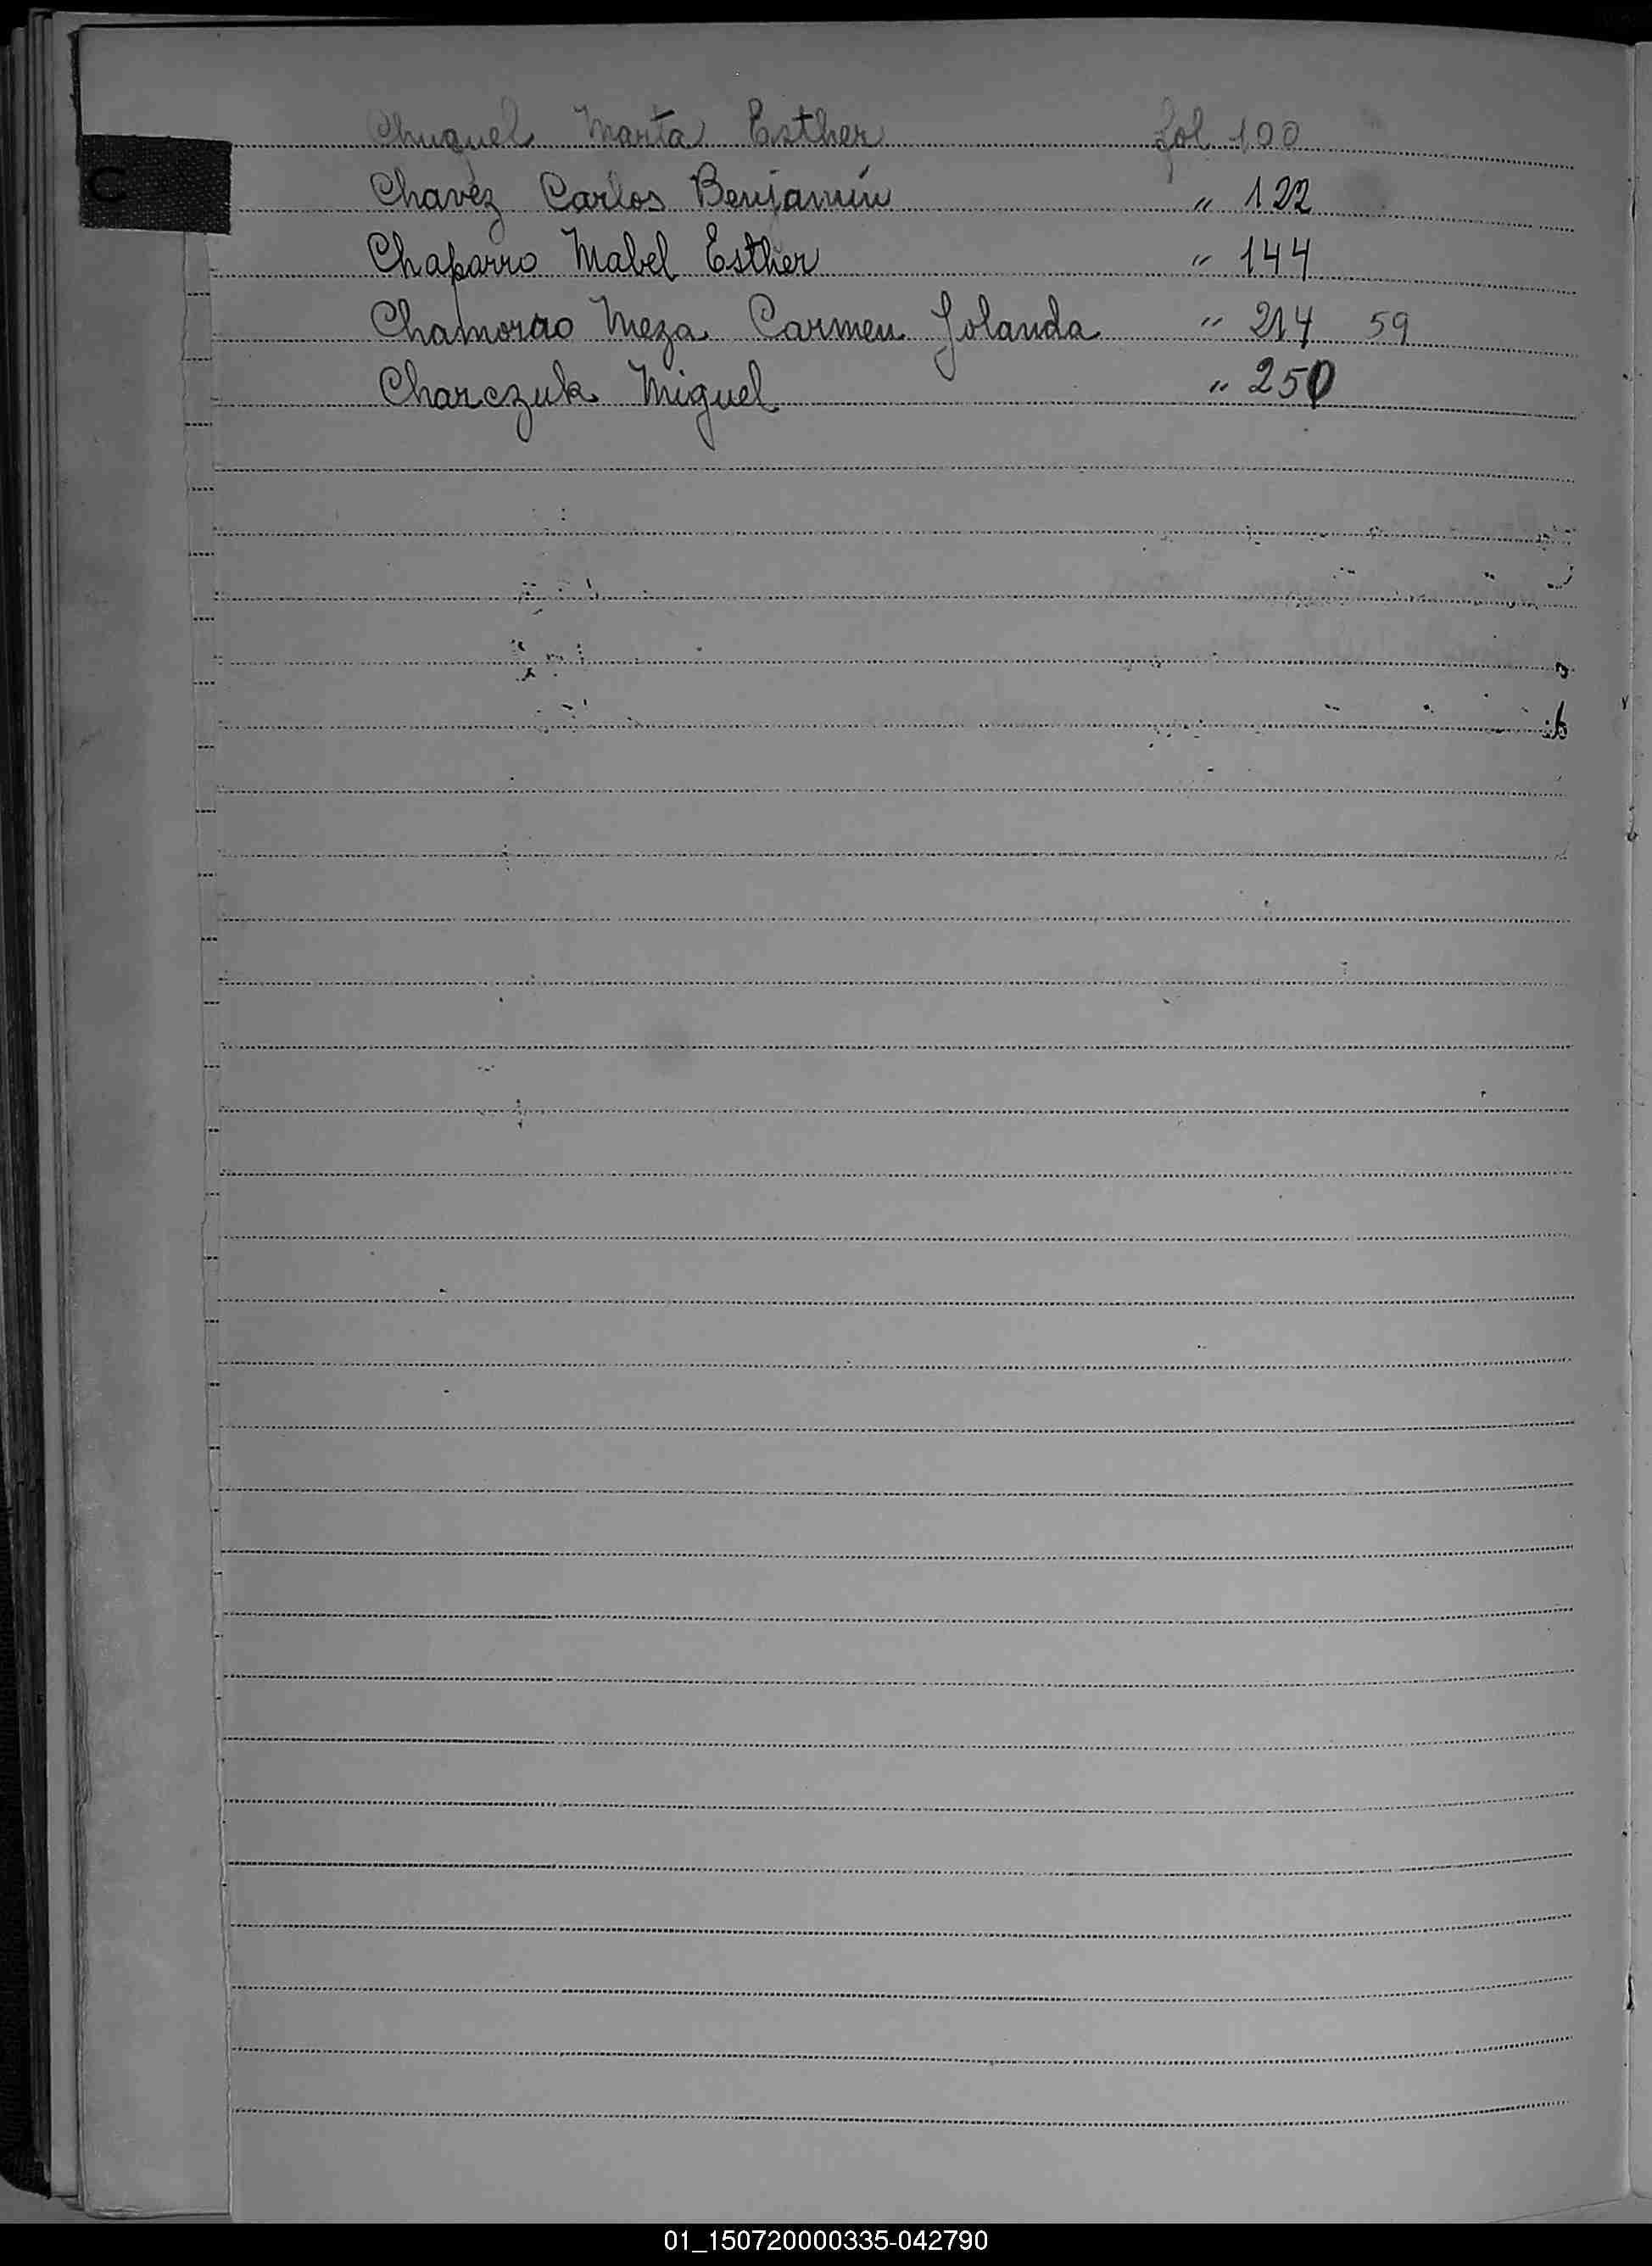 C
Chuquel Marta Esther fol 100
Chavez Carlos Benjamín " 122
Chaparro Mabel Esther " 144
Chamorro Meza Carmen Jolanda " 214 59
Charczuk Miguel " 250
01_150720000335-042790